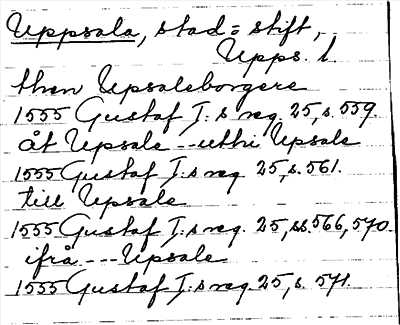 Uppsala, stad = stift,
Upps. l.
then Upsaleborgere
1555 Gustaf I:s reg. 25, s. 559.
åt Upsale --uthi Upsale
1555 Gustaf I:s reg 25, s. 561.
till Upsale
1555 Gustaf I:s reg. 25, ss. 566, 570
ifrå --- Upsale
1555 Gustaf I:s reg. 25, s. 571.